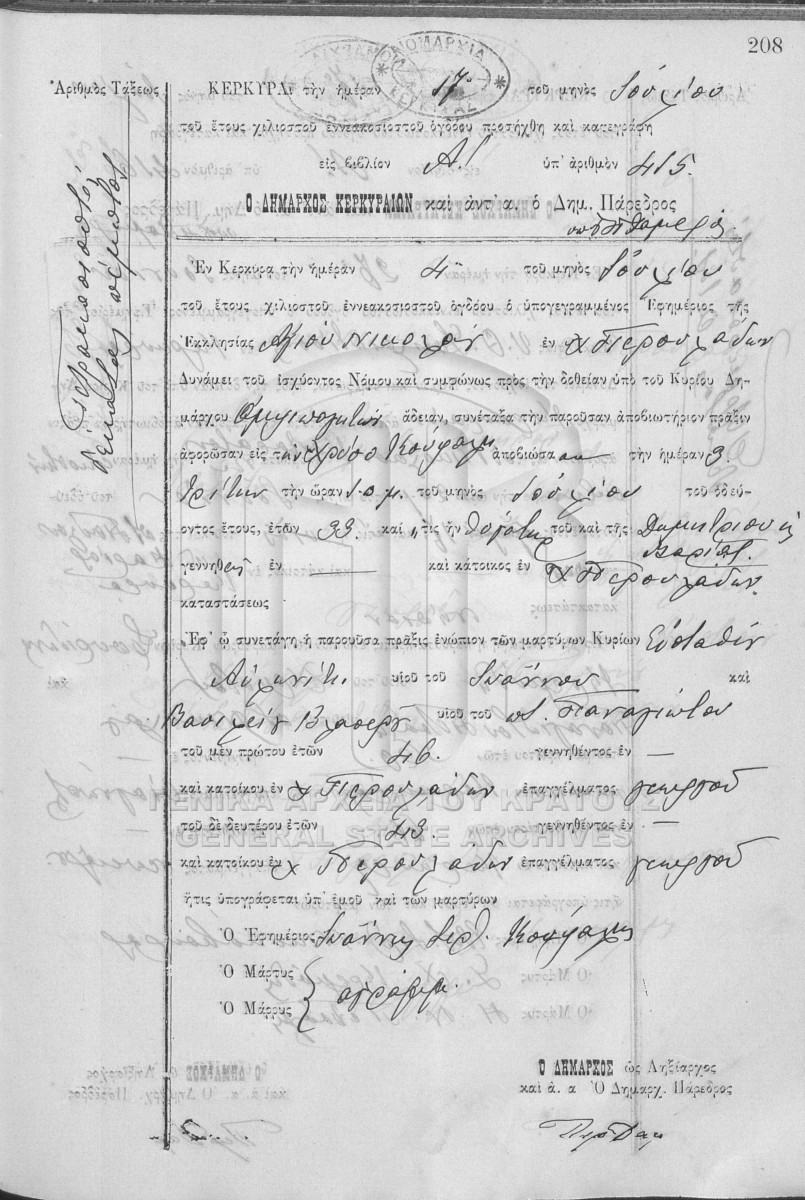 208
ΝΟΜΑΡΧΙΑ
ΚΕΡΚΥΡΑΣ
Ἀριθμὸς Τάξεως
ΚΕΡΚΥΡΑι τὴν ἡμέραν 17 τοῦ μηνὸς Ἰουλίου
τοῦ ἔτους χιλιοστοῦ ἐννεακοσιοστοῦ ὀγδόου προσήχθη καὶ κατεγράφη
εἰς βιβλίον Α! ὑπ' ἀριθμὸν 415.
Ο ΔΗΜΑΡΧΟΣ ΚΕΡΚΥΡΑΙΩΝ καὶ ἀντ' α. ὁ Δημ. Πάρεδρος
Ἐν Κερκύρα τὴν ἡμέραν 4 τοῦ μηνὸς Ἰουλίου
τοῦ ἔτους χιλιοστοῦ ἐννεακοσιοστοῦ ὀγδόου ὁ ὑπογεγραμμένος Ἐφημέριος τῆς
Ἐκκλησίας Ἁγίου Νικολάου ἐν χ Περουλάδων
Δυνάμει τοῦ ἰσχύοντος Νόμου καὶ συμφώνως πρὸς τὴν δοθεῖαν ὑπὸ τοῦ Κυρίου Δη-
μάρχου ἄδειάν, συνέταξα τὴν παροῦσαν ἀποβιωτήριον πρᾶξιν
ἀφορῶσαν εἰς τὴν Χρύσω Κουφάκη ἀποβιώσασαν τὴν ἡμέραν 3.
τρίτην τὴν ὥραν μ. τοῦ μηνὸς Ἰουλίου τοῦ ὁδεύ-
οντος ἔτους, ἐτῶν 33. καὶ ἥτις ἦν θυγάτηρ τοῦ καὶ τῆς Δημητρίου
γεννηθ ἐν — καὶ κάτοικος ἐν χ Περουλάδων
καταστάσεως
Ἐφ' ᾧ συνετάγη ἡ παροῦσα πρᾶξις ἐνώπιον τῶν μαρτύρων Κυρίων Εὐστάθιον
Αὐλωνίτ. υἱοῦ τοῦ Ἰωάννου καὶ
Βασιλείου Βλασερῦ υἱοῦ τοῦ π. Παναγιώτου
τοῦ μὲν πρώτου ἐτῶν 46. γεννηθέντος ἐν —
καὶ κατοίκου ἐν χ Περουλάδων ἐπαγγέλματος γεωργοῦ
τοῦ δὲ δευτέρου ἐτῶν 43 γεννηθέντος ἐν —
καὶ κατοίκου ἐν χ Περουλάδων ἐπαγγέλματος γεωργοῦ
ἥτις ὑπογράφεται ὑπ' ἐμοῦ καὶ τῶν μαρτύρων
Ὁ Ἐφημέριος Ἰωάννης
Ὁ Μάρτυς
Ὁ Μάρρυς
ἀγράμμ.
Ο ΔΗΜΑΡΧΟΣ ὡς Ληξίαρχος
καὶ ἀ. α Ὁ Δημαρχ. Πάρεδρος
ΓΕΝΙΚΑ ΑΡΧΕΙΑ ΤΟΥ ΚΡΑΤΟΥΣ
GENERAL STATE ARCHIVES